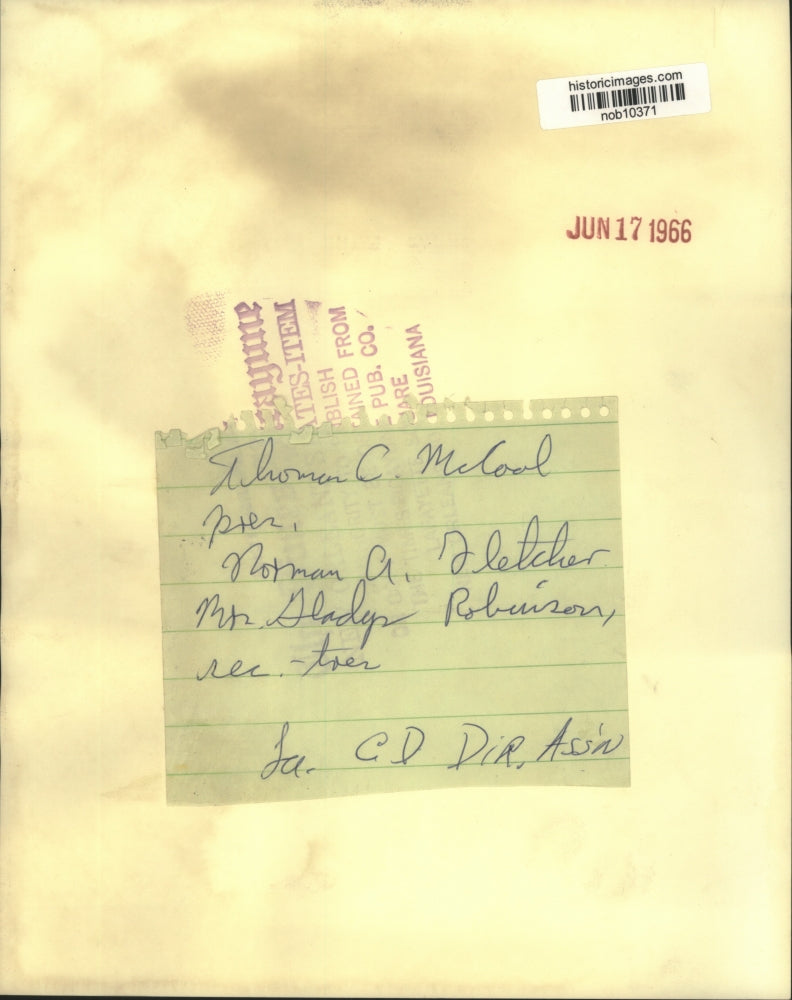 historicimages.com
nob10371
JUN 17 1966
ayune
ATES-ITEM
BLISH
AINED FROM
PUB. CO.
ARE
OUISIANA
Thomas C. McCool
pres.
Norman A. Fletcher
Mrs. Gladys Robinson,
sec.-tres
La. CD DIR. Ass'n